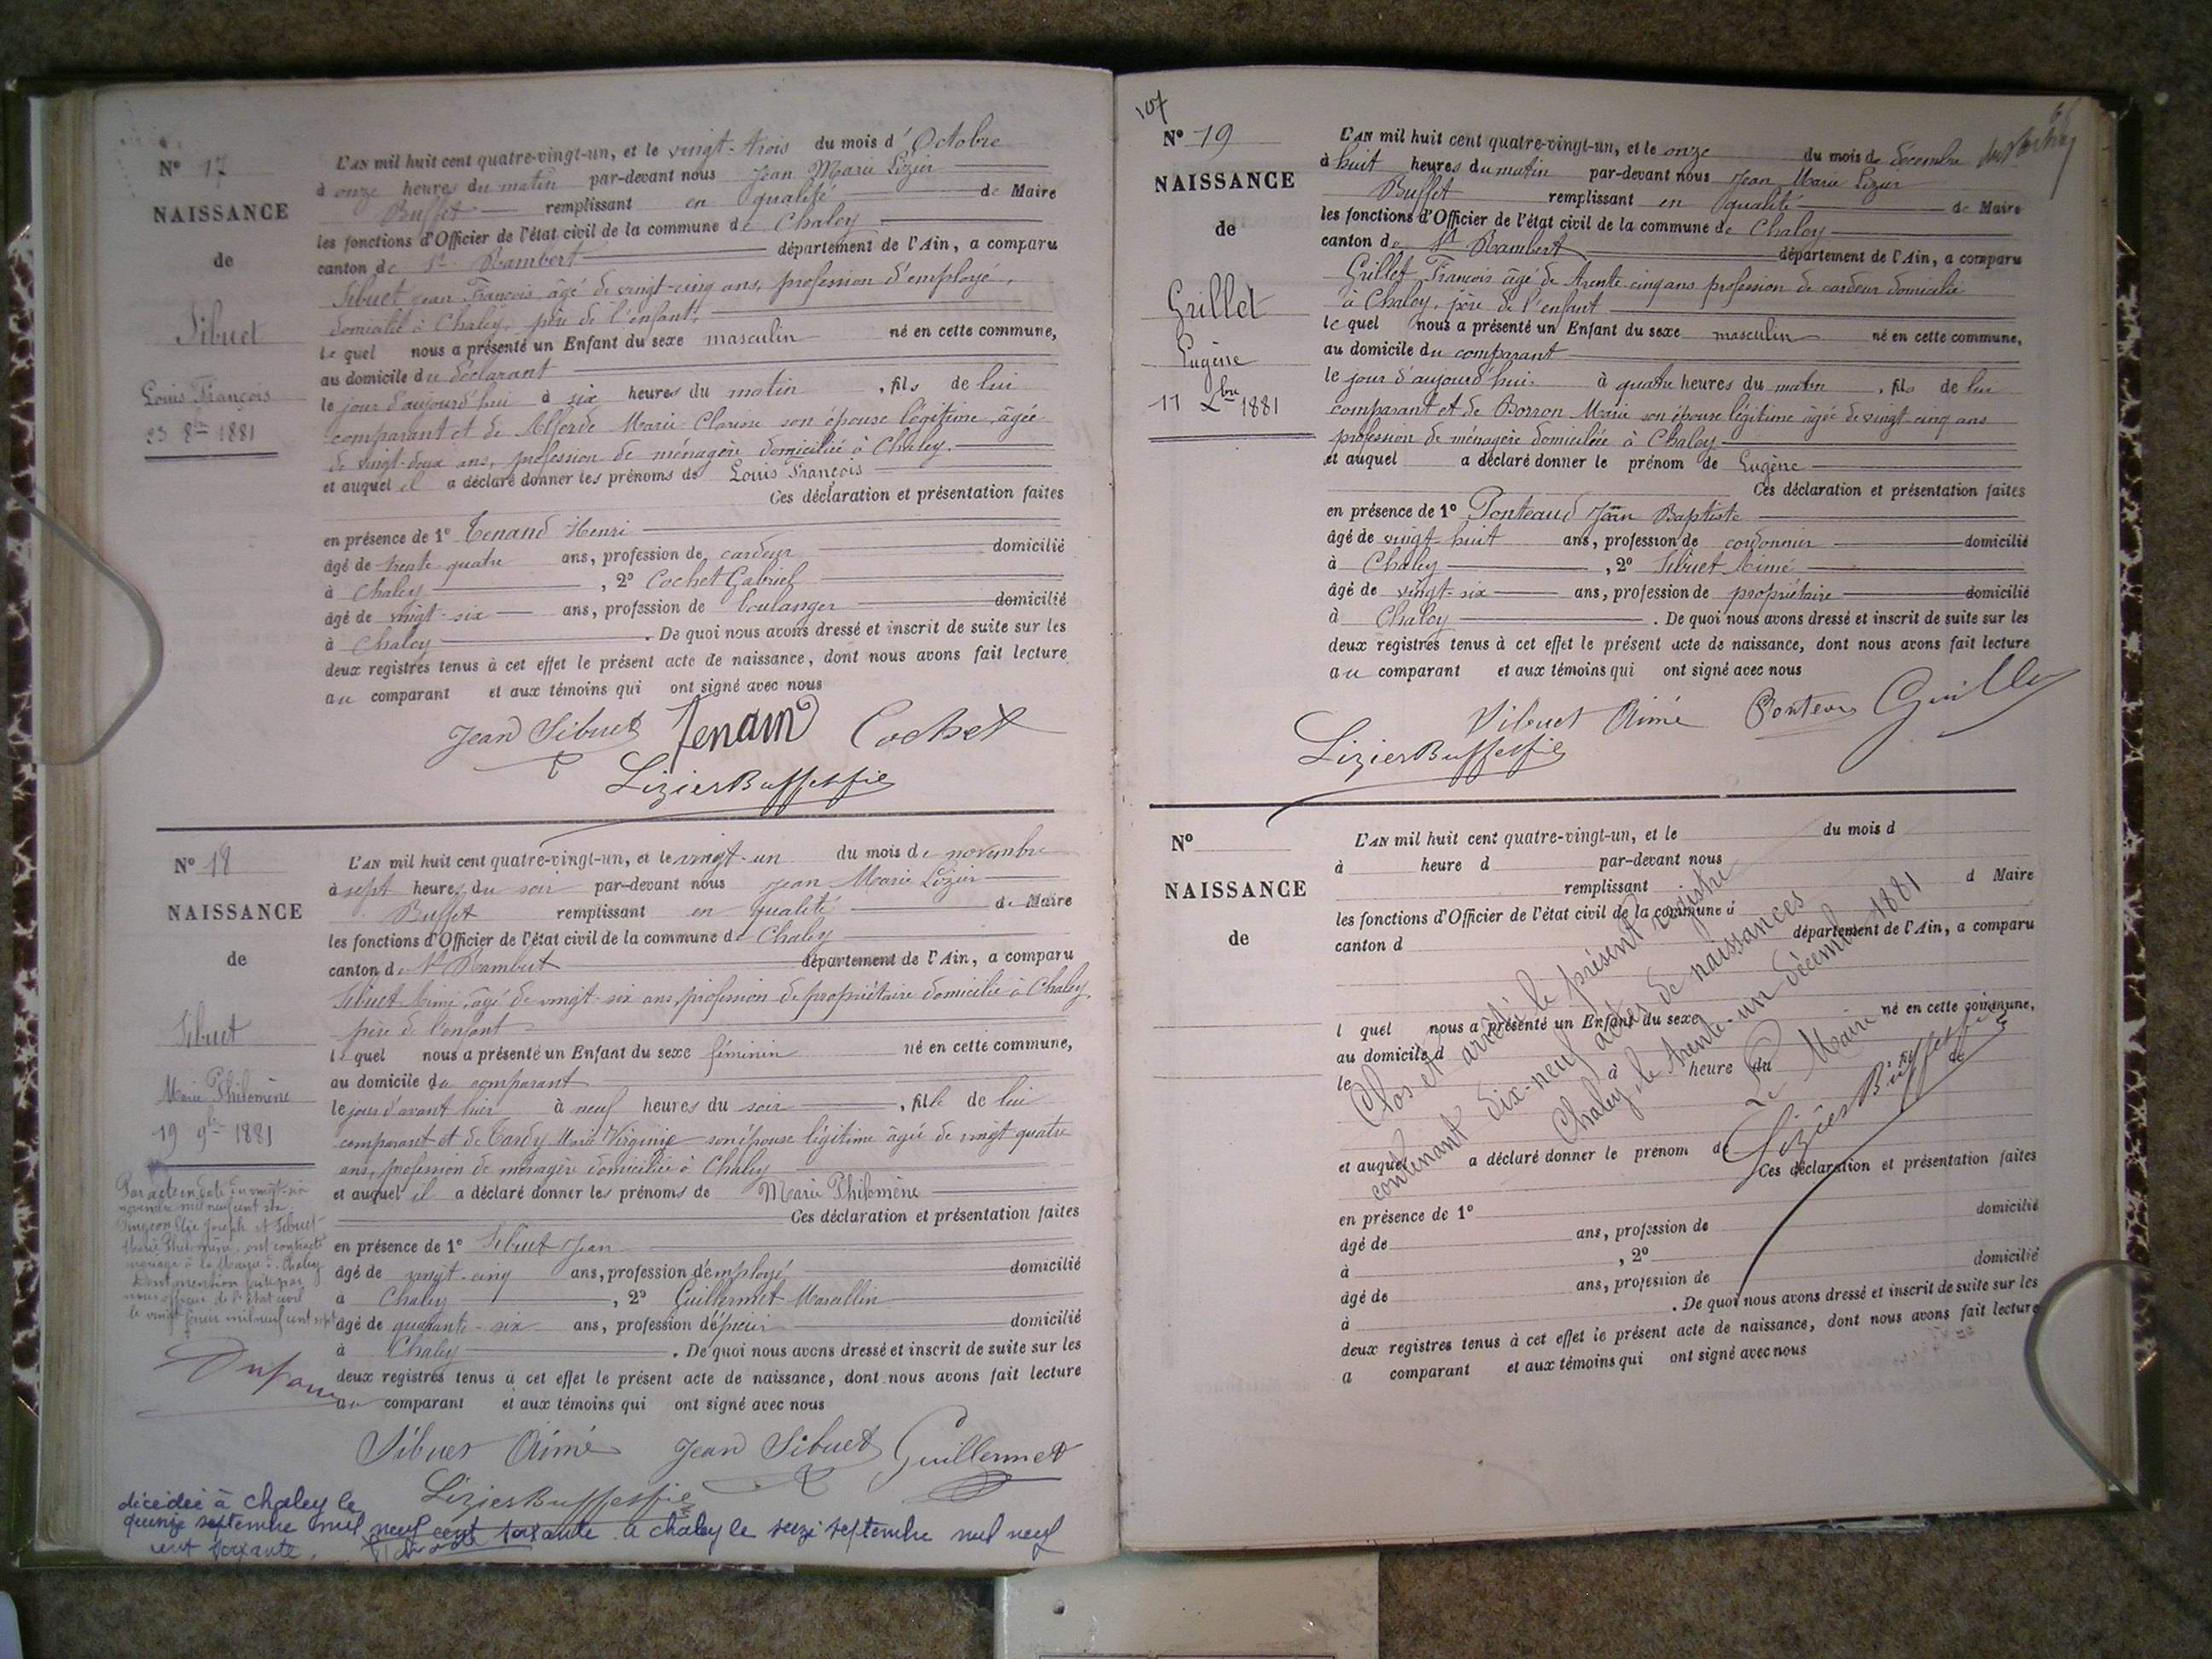 N° 17
NAISSANCE
de
Sibuet
Louis François
23 8bre 1881
L'AN mil huit cent quatre-vingt-un, et le vingt-trois du mois d'Octobre
à onze heures du matin par-devant nous Jean Marie Lizier
Buffet remplissant en qualité de Maire
les fonctions d'Officier de l'état civil de la commune de Chaley
canton de St Rambert département de l'Ain, a comparu
Sibuet Jean François, âgé de vingt-cinq ans, profession d'employé,
domicilié à Chaley, père de l'enfant,
lequel nous a présenté un Enfant du sexe masculin né en cette commune,
au domicile du déclarant
le jour d'aujourd'hui à six heures du matin, fils de lui
comparant et de Marie son épouse légitime, âgée
de vingt-deux ans, profession de ménagère domiciliée à Chaley.
et auquel il a déclaré donner les prénoms de Louis François
Ces déclaration et présentation faites
en présence de 1° Tenand Henri
âgé de trente quatre ans, profession de cardeur domicilié
à Chaley, 2° Cochet Gabriel
âgé de vingt-six ans, profession de boulanger domicilié
à Chaley. De quoi nous avons dressé et inscrit de suite sur les
deux registres tenus à cet effet le présent acte de naissance, dont nous avons fait lecture
au comparant et aux témoins qui ont signé avec nous
Jean Sibuet Tenand Cochet
LizierBuffet
N° 18
NAISSANCE
de
Sibuet
Marie Philomène
19 9bre 1881
Par acte en date du vingt-six
novembre mil neuf cent six
Elie Joseph et Sibuet
Marie Philomène, ont contracté
mariage à la Mairie de Chaley
Dont mention faite par
nous officier de l'état civil
le vingt mil neuf cent sept
L'AN mil huit cent quatre-vingt-un, et le vingt-un du mois de novembre
à sept heures du soir par-devant nous Jean Marie Lizier
Buffet remplissant en qualité de Maire
les fonctions d'Officier de l'état civil de la commune de Chaley
canton de St Rambert département de l'Ain, a comparu
Sibuet Aimé, âgé de vingt-six ans, profession de propriétaire domicilié à Chaley,
père de l'enfant
lequel nous a présenté un Enfant du sexe féminin né en cette commune,
au domicile du comparant
le jour d'avant hier à neuf heures du soir, fille de lui
comparant et de Tardy Marie Virginie son épouse légitime âgée de vingt quatre
ans, profession de ménagère domiciliée à Chaley
et auquel il a déclaré donner les prénoms de Marie Philomène
Ces déclaration et présentation faites
en présence de 1° Sibuet Jean
âgé de vingt-cinq ans, profession d'employé domicilié
à Chaley, 2° Guillermet Marcellin
âgé de quarante-six ans, profession d'épicier domicilié
à Chaley. De quoi nous avons dressé et inscrit de suite sur les
deux registres tenus à cet effet le présent acte de naissance, dont nous avons fait lecture
au comparant et aux témoins qui ont signé avec nous
Sibuet Aimé Jean Sibuet Guillermet
LizierBuffet
décédée à Chaley le
quinze septembre mil neuf cent soixante. a chaley le seize septembre mil neuf
cent soixante.
107
N° 19
NAISSANCE
de
Grillet
Eugène
11 Xbre 1881
L'AN mil huit cent quatre-vingt-un, et le onze du mois de décembre
à huit heures du matin par-devant nous Jean Marie Lizier
Buffet remplissant en qualité de Maire
les fonctions d'Officier de l'état civil de la commune de Chaley
canton de St Rambert département de l'Ain, a comparu
Grillet François âgé de trente-cinq ans profession de cardeur domicilié
à Chaley, père de l'enfant
lequel nous a présenté un Enfant du sexe masculin né en cette commune,
au domicile du comparant
le jour d'aujourd'hui à quatre heures du matin, fils de lui
comparant et de Borron Marie son épouse légitime âgée de vingt-cinq ans
profession de ménagère domiciliée à Chaley
et auquel a déclaré donner le prénom de Eugène
Ces déclaration et présentation faites
en présence de 1° Ponteaud Jean Baptiste
âgé de vingt huit ans, profession de cordonnier domicilié
à Chaley, 2° Sibuet Aimé
âgé de vingt-six ans, profession de propriétaire domicilié
à Chaley. De quoi nous avons dressé et inscrit de suite sur les
deux registres tenus à cet effet le présent acte de naissance, dont nous avons fait lecture
au comparant et aux témoins qui ont signé avec nous
Sibuet Aimé
LizierBuffet
N°
NAISSANCE
de
L'AN mil huit cent quatre-vingt-un, et le du mois d
à heure d par-devant nous
remplissant d Maire
les fonctions d'Officier de l'état civil de la commune d
canton d département de l'Ain, a comparu
l quel nous a présenté un Enfant du sexe né en cette commune,
au domicile d
le à heure du de
et auquel a déclaré donner le prénom d
Ces déclaration et présentation faites
en présence de 1°
âgé de ans, profession de domicilié
à , 2°
âgé de ans, profession de domicilié
à . De quoi nous avons dressé et inscrit de suite sur les
deux registres tenus à cet effet le présent acte de naissance, dont nous avons fait lecture
a comparant et aux témoins qui ont signé avec nous
Clos et arrêté le présent registre
contenant dix-neuf actes de naissances
Chaley le trente-un décembre 1881
Le Maire
LizierBuffet